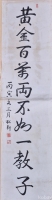 黄金百萬兩不如一教子
丙寅年三月